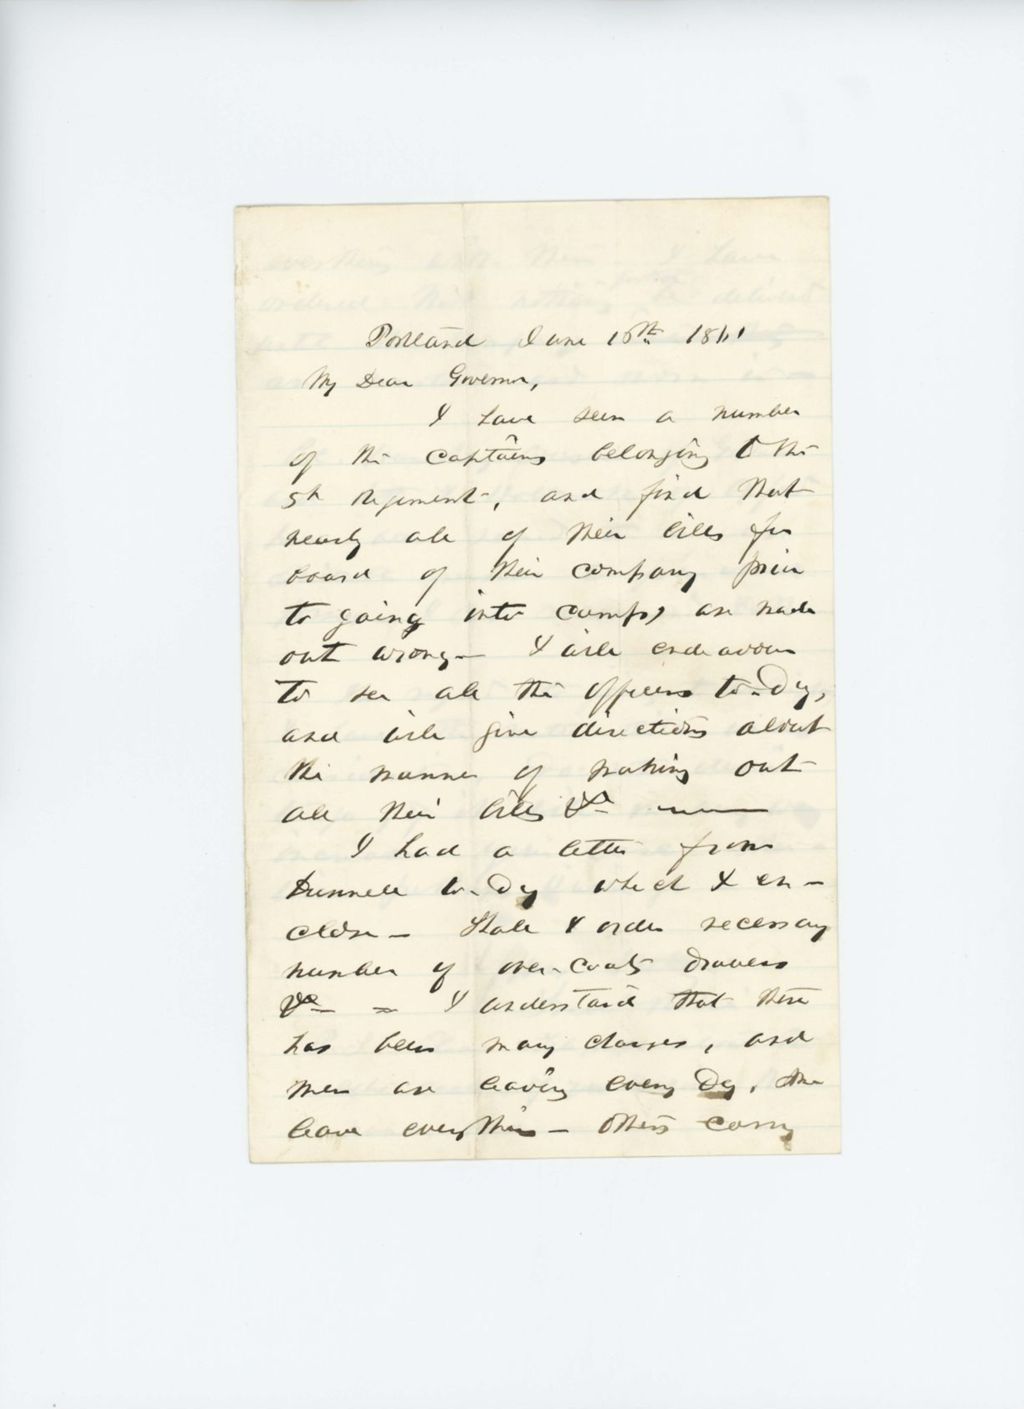 Portland June 15th 1861
My Dear Governor,
I have seen a number
of the Captains belonging to the
5th Regiment, and find that
nearly all of their bills for
board of their company prior
to going into camp, are made
out wrong — I will endeavour
to see all the officers to-Day,
and will give directions about
the manner of making out
all their bills &c —
I had a letter from
Dunnell to-Day which I en-
close — Shall I order necessary
number of over-Coats drawers
&c — I understand that there
has been many changes, and
men are leaving every Day,
leave everything — others carry